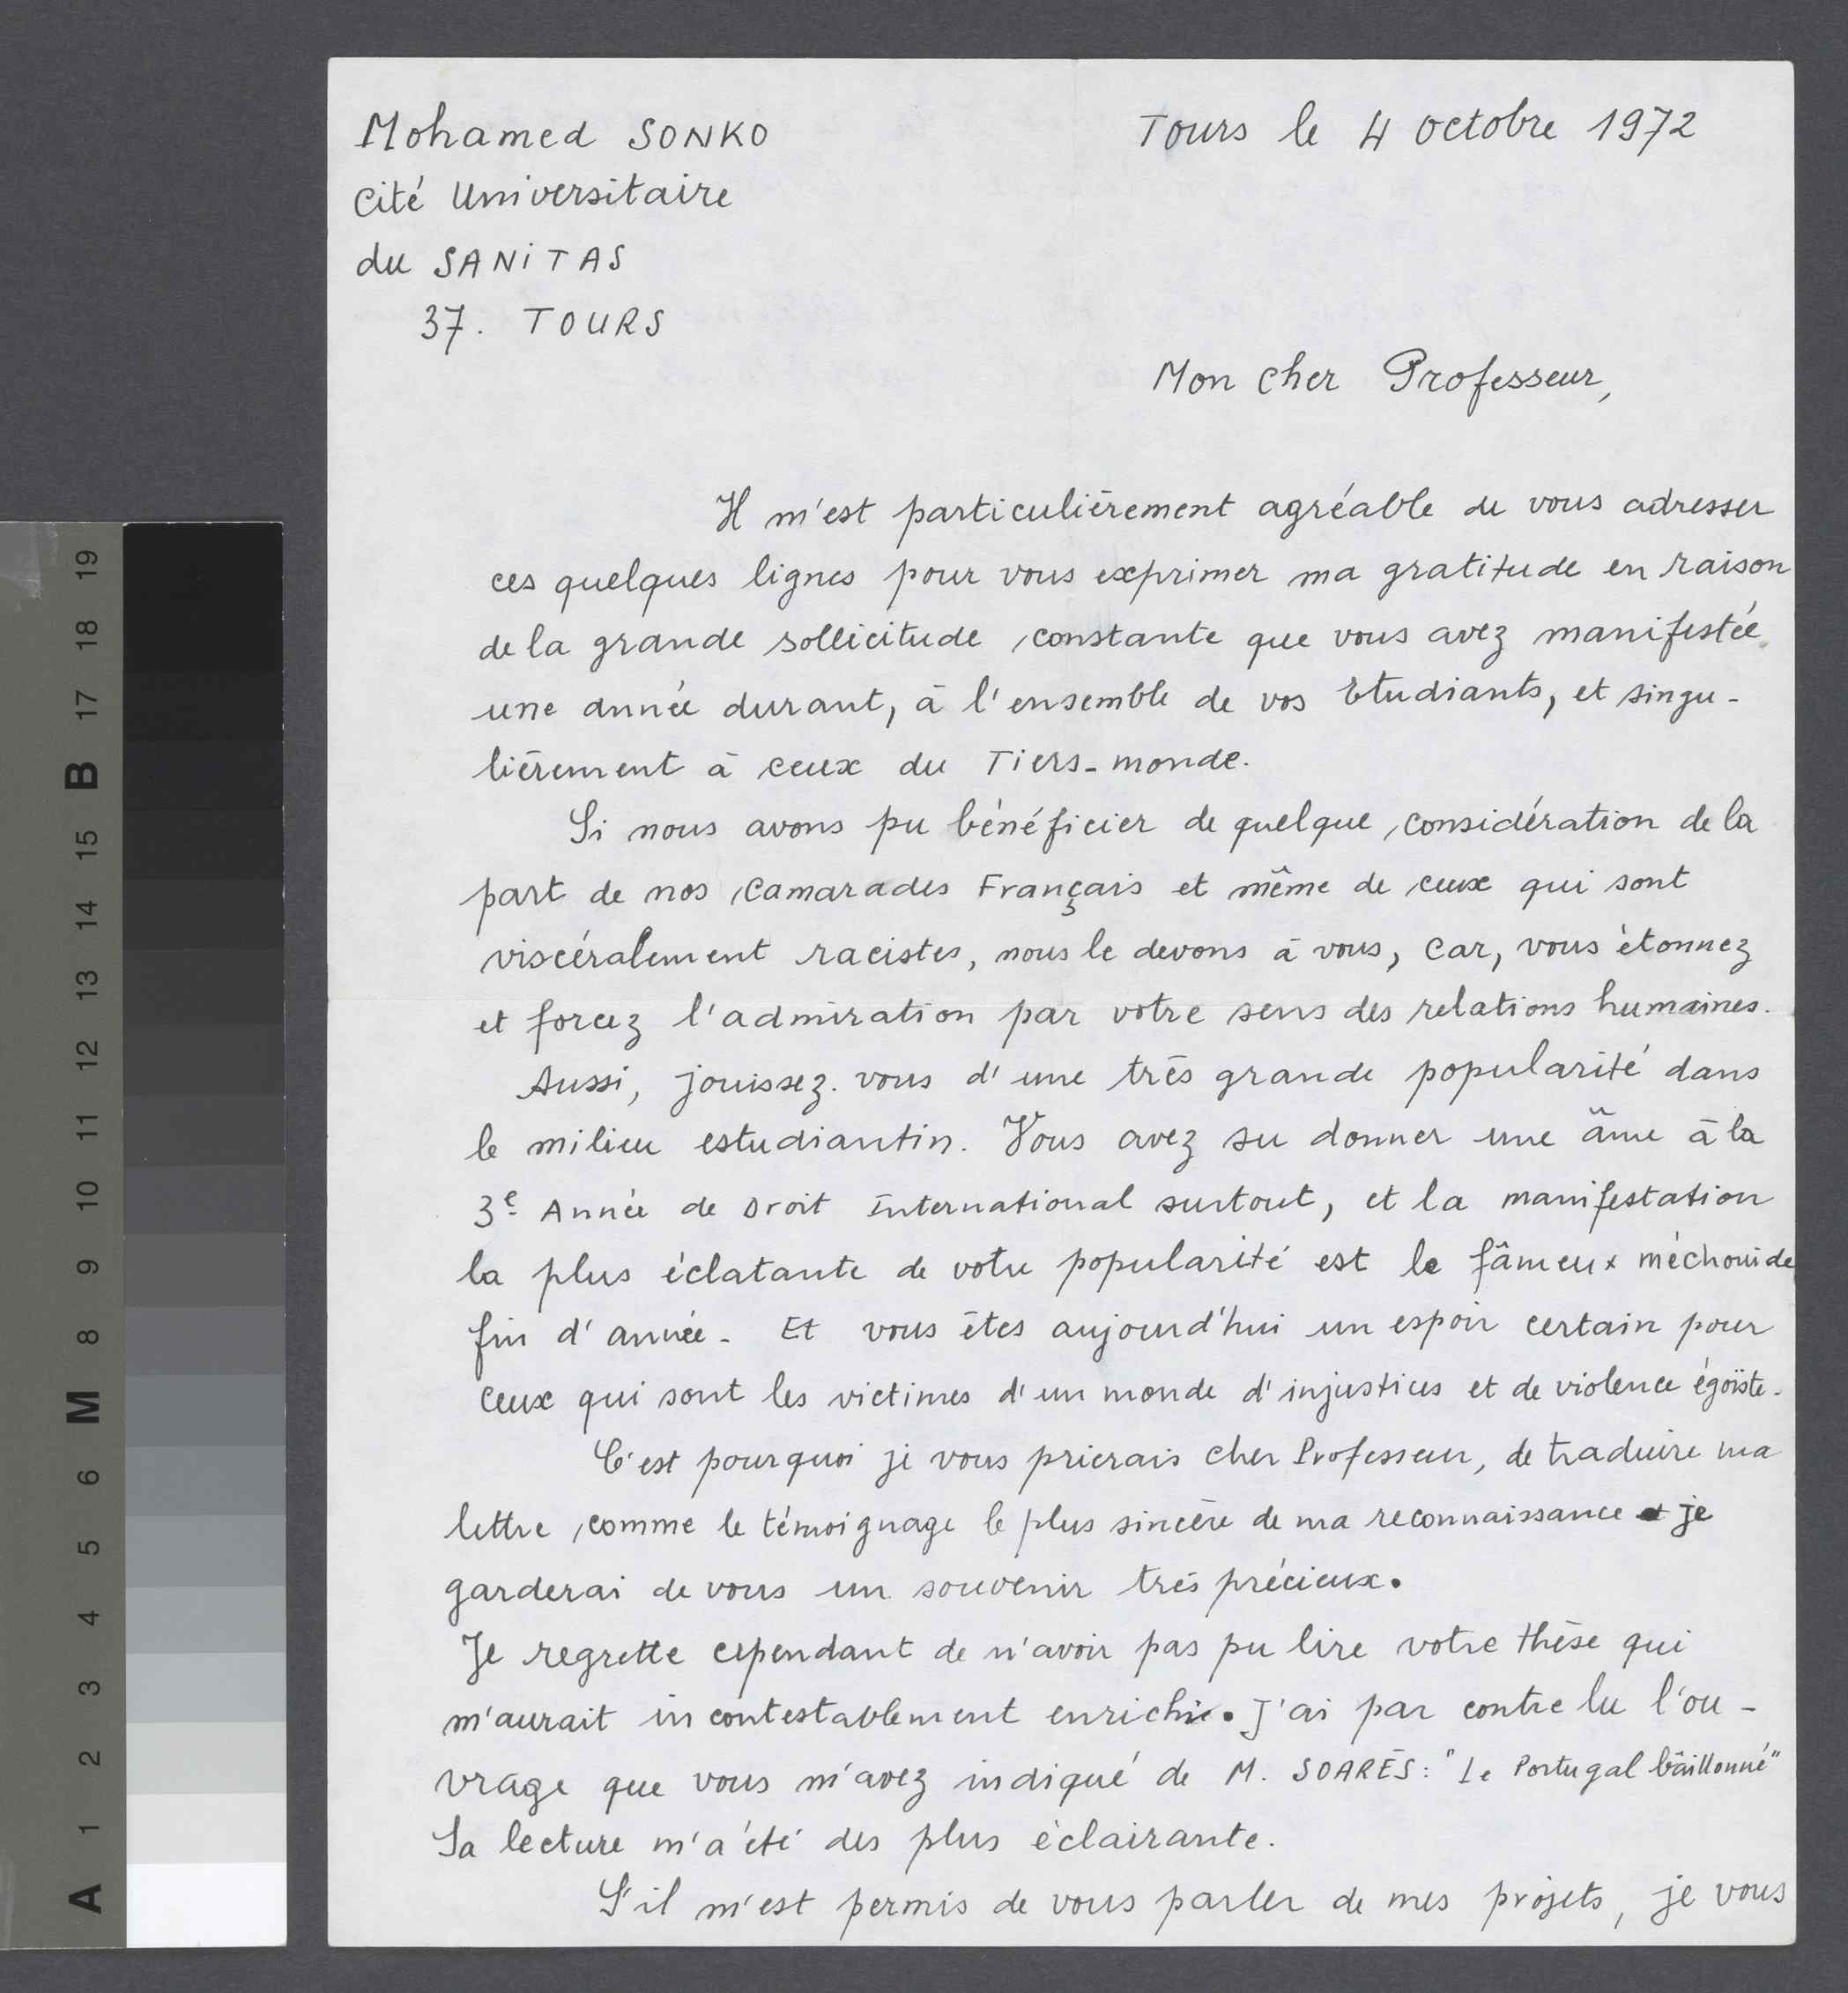 Mohamed SONKO
Tours le 4 octobre 1972
Cité Universitaire
du SANiTAS
37. TOURS
Mon cher Professeur,
Il m'est particulièrement agréable de vous adresser
ces quelques lignes pour vous exprimer ma gratitude en raison
de la grande sollicitude constante que vous avez manifestée
une année durant, à l'ensemble de vos Etudiants, et singu-
lièrement à ceux du Tiers-monde.
Si nous avons pu bénéficier de quelque considération de la
part de nos camarades Français et même de ceux qui sont
viscéralement racistes, nous le devons à vous, car, vous étonnez
et forcez l'admiration par votre sens des relations humaines.
Aussi, jouissez-vous d'une très grande popularité dans
le milieu estudiantin. Vous avez su donner une âme à la
3e Année de Droit International surtout, et la manifestation
la plus éclatante de votre popularité est le fâmeux méchoui de
fin d'année. Et vous êtes aujourd'hui un espoir certain pour
ceux qui sont les victimes d'un monde d'injustices et de violence égoïste.
C'est pourquoi je vous prierais cher Professeur, de traduire ma
lettre comme le témoignage le plus sincère de ma reconnaissance et je
garderai de vous un souvenir très précieux.
Je regrette cependant de n'avoir pas pu lire votre thèse qui
m'aurait incontestablement enrichi. J'ai par contre lu l'ou-
vrage que vous m'avez indiqué de M. SOARÈS: "Le Portugal bâillonné"
Sa lecture m'a été des plus éclairante.
S'il m'est permis de vous parler de mes projets, je vous
A 1 2 3 4 5 6 M 8 9 10 11 12 13 14 15 B 17 18 19